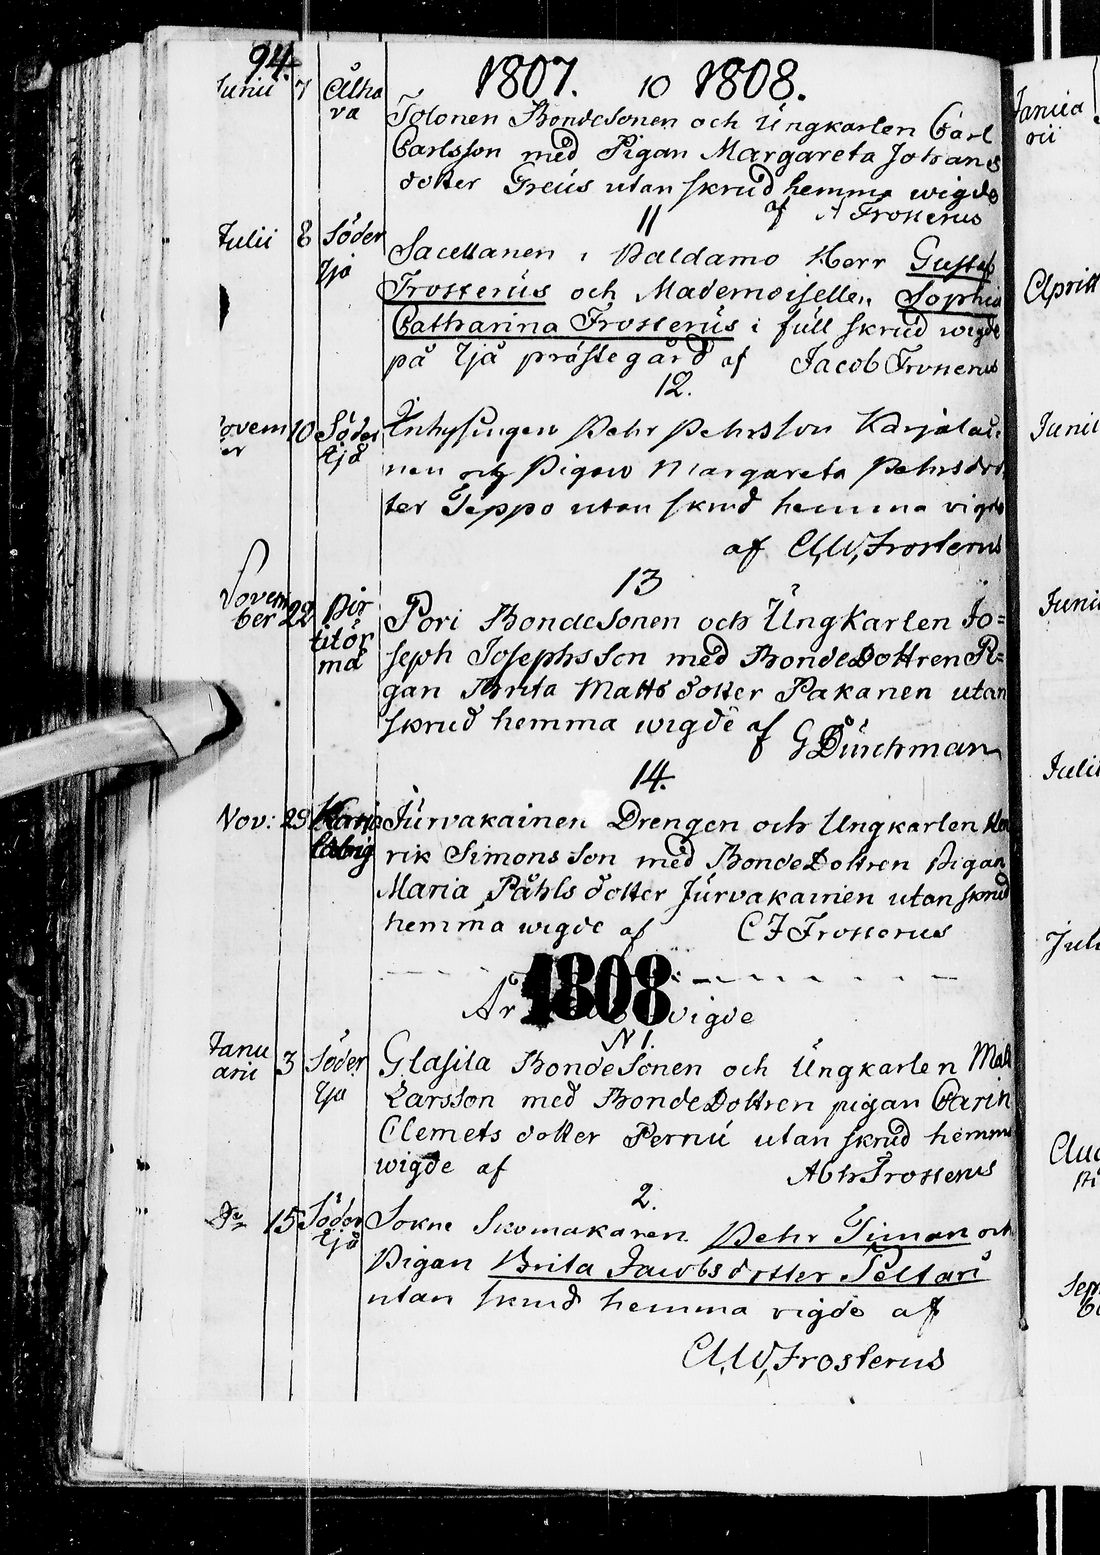 94.
1807. 10 1808.
Junii 7 Alha
va
Tolonen BondeSonen och Ungkarlen Carl
Carlsson med Pigan Margareta Johans
dotter Greus utan skrud hemma wigde
af A Frosterus
11
Julii 8 Söder
Ijo
Sacellanen i Paldamo Herr Gustaf
Frosterus och Mademoisellen Sophia
Catharina Frosterus i full skrud wigde
på Ijå prästegård af Jacob Frosterus
12.
ovem 10 Söder
er Ijå
Inhysingen Pehr Pehrsson Karjalai
nen och Pigan Margareta Pehrsdot
ter Seppo utan skrud hemma vigde
af A,W,Frosterus
13
Novem
ber 22 Pir
titör
mä
Pori BondeSonen och Ungkarlen Jo=
seph Josephsson med BondeDottren Pi=
gan Brita Matts dotter Pakanen utan
skrud hemma wigde af
G Buschman
14.
Nov: 29
Jurvakainen Drengen och Ungkarlen Hen
rik Simonsson med BondeDottren Pigan
Maria Påhls dotter Jurvakainen utan skrud
hemma wigde af C F Frosterus
År 1808 vigde
N 1.
Janu
arii 3 Söder
Ijo
Glasila BondeSonen och Ungkarlen Mats
Larsson med BondeDottren pigan Carin
Clemets dotter Pernu utan skrud hemma
wigde af Abr Frosterus
2.
Do 15 Söder
Ijå
Sokne Skomakaren Pehr Timan och
Pigan Brita Jacobsdotter Peltari
utan skrud hemma vigde af
A,W,Frosterus
Janua
rii
April
Junii
Junii
Julii
Juli
Aug
Sep